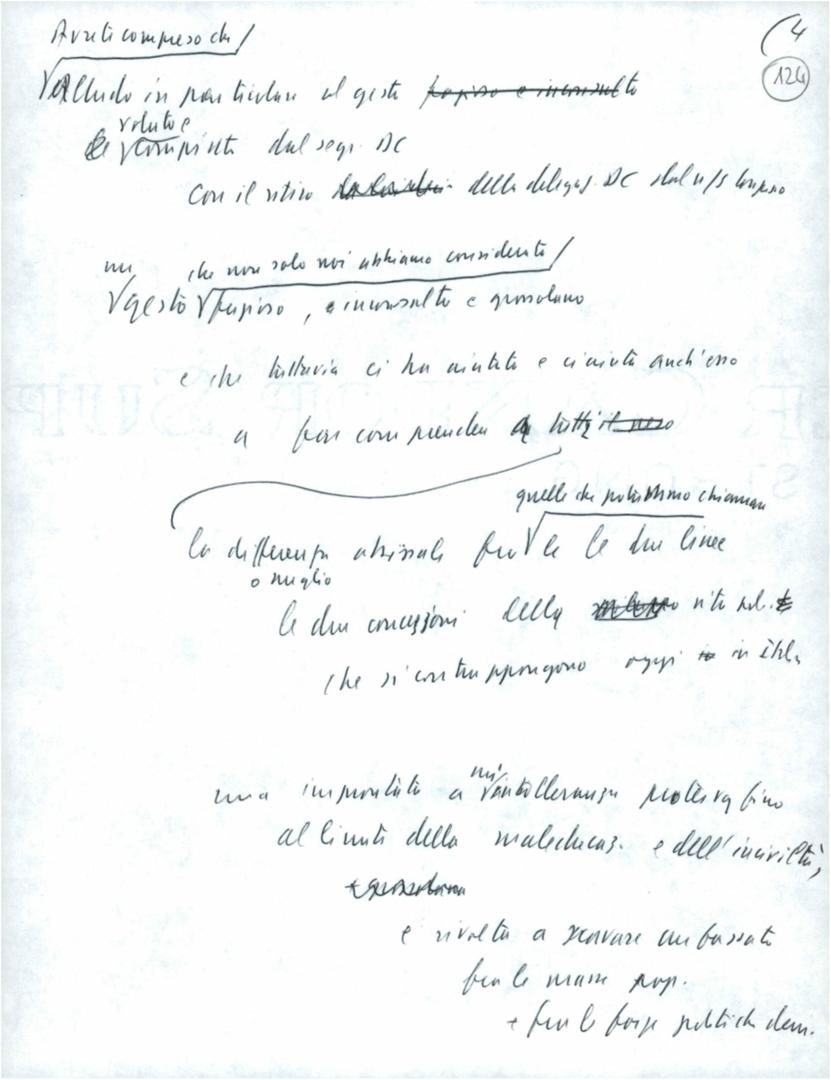 Avrete compreso che
(4
124
Alludo in particolare al gesto fazioso e inconsulto
voluto e
compiuto dal segr. DC
con il ritiro della delegaz. DC dal n/s Congresso
un che non solo noi abbiamo considerato
gesto fazioso, e inconsulto e grossolano
e che tuttavia ci ha aiutato e ci aiuta anch'esso
a far comprendere a tutti il senso
quelle che potremmo chiamare
la differenza abissale fra le due linee
o meglio
le due concezioni della vita pol.
che si contrappongono oggi in Italia
un'
una improntata a intolleranza proterva fino
ai limiti della maleducaz. e dell'inciviltà,
e grossolana
e rivolta a scavare un fossato
fra le masse pop.
e fra le forze politiche dem.